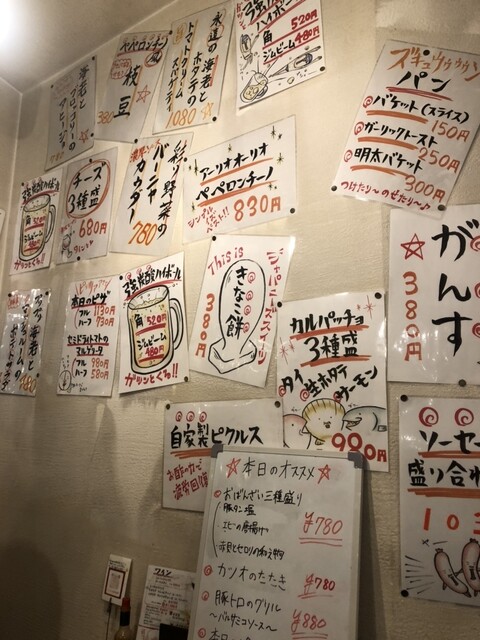 海老と
ブロッコリーの
アヒージョ
ペペロンチーノ風
枝豆
380
永遠の海老と
ホタテの
トマトクリーム
スパゲティ
1080
強炭酸
ハイボール
角 520円
ジムビーム 480円
ズキュゥゥゥン
パン
バケット(スライス)
150円
ガーリックトースト
250円
明太バケット
300円
つけたり〜のせたり〜♪
角 520円
ジムビーム
ガツンとくっ!!
チーズ
3種盛
680円
彩り野菜の
バーニャ
カウダー
780
アーリオオーリオ
ペペロンチーノ
シンプルイズ
ベスト!!
830円
がんす
380円
本日のピザ
フル 1130円
ハーフ 730円
セミドライトマトの
マルゲリータ
フル 980円
ハーフ 580円
強炭酸ハイボール
角 520円
ジムビーム
480円
ガツンとくっ!!
This is
きなこ餅
ジャパニーズスイーツ
380円
カルパッチョ
3種盛
タイ
生ホタテ
サーモン
980円
自家製ピクルス
お酢の力で
疲労回復
ソーセー
盛り合わ
103
本日のオススメ
おばんざい三種盛り
豚タン塩
エビの唐揚げ
赤貝とセロリの和え物
¥780
カツオのたたき
¥780
豚トロのグリル
〜バルサミコソース〜
¥880
本日
ワイン